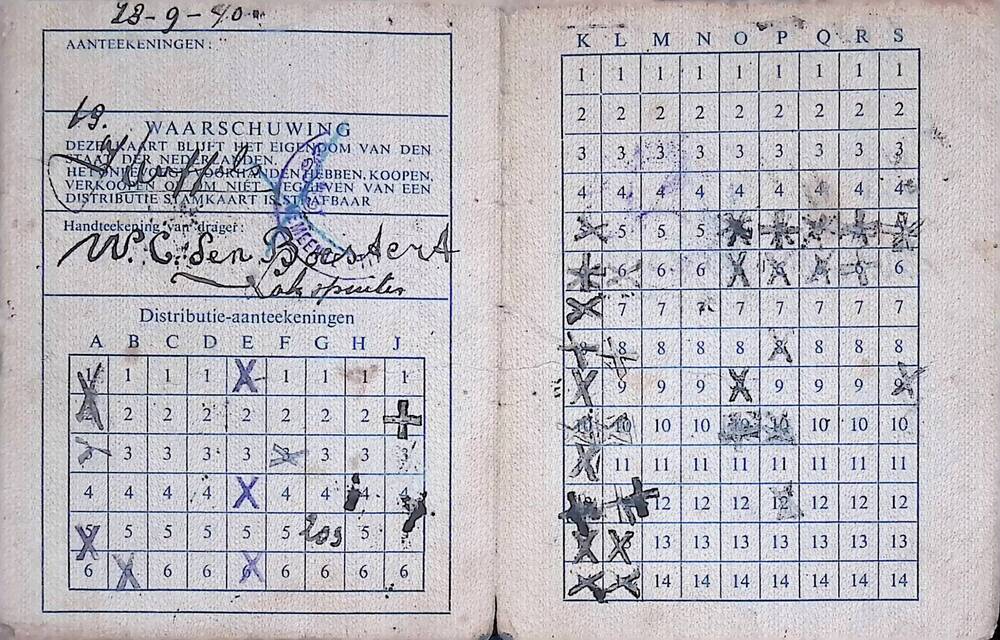 23-9-40
AANTEEKENINGEN:
19.
WAARSCHUWING
DEZE KAART BLIJFT HET EIGENDOM VAN DEN
STAAT DER NEDERLANDEN.
HET ONRECHTMATIG VOORHANDEN HEBBEN, KOOPEN,
VERKOOPEN OF OM NIET VEGGEVEN VAN EEN
DISTRIBUTIE STAMKAART IS STRAFBAAR
Handteekening van drager:
W. C. den Boestert
Distributie-aanteekeningen
A B C D E F G H J
1 1 1 1 1 1 1 1
2 2 2 2 2 2 2 2
3 3 3 3 3 3 3 3 3
4 4 4 4 4 4 4 4
5 5 5 5 5 5 203 5
6 6 6 6 6 6 6 6 6
K L M N O P Q R S
1 1 1 1 1 1 1 1 1
2 2 2 2 2 2 2 2 2
3 3 3 3 3 3 3 3 3
4 4 4 4 4 4 4 4 4
5 5 5
6 6 6 6 6
7 7 7 7 7 7 7 7
8 8 8 8 8 8 8 8
9 9 9 9 9 9 9
10 10 10 10 10 10 10 10 10
11 11 11 11 11 11 11 11
12 12 12 12 12 12 12
13 13 13 13 13 13 13
14 14 14 14 14 14 14